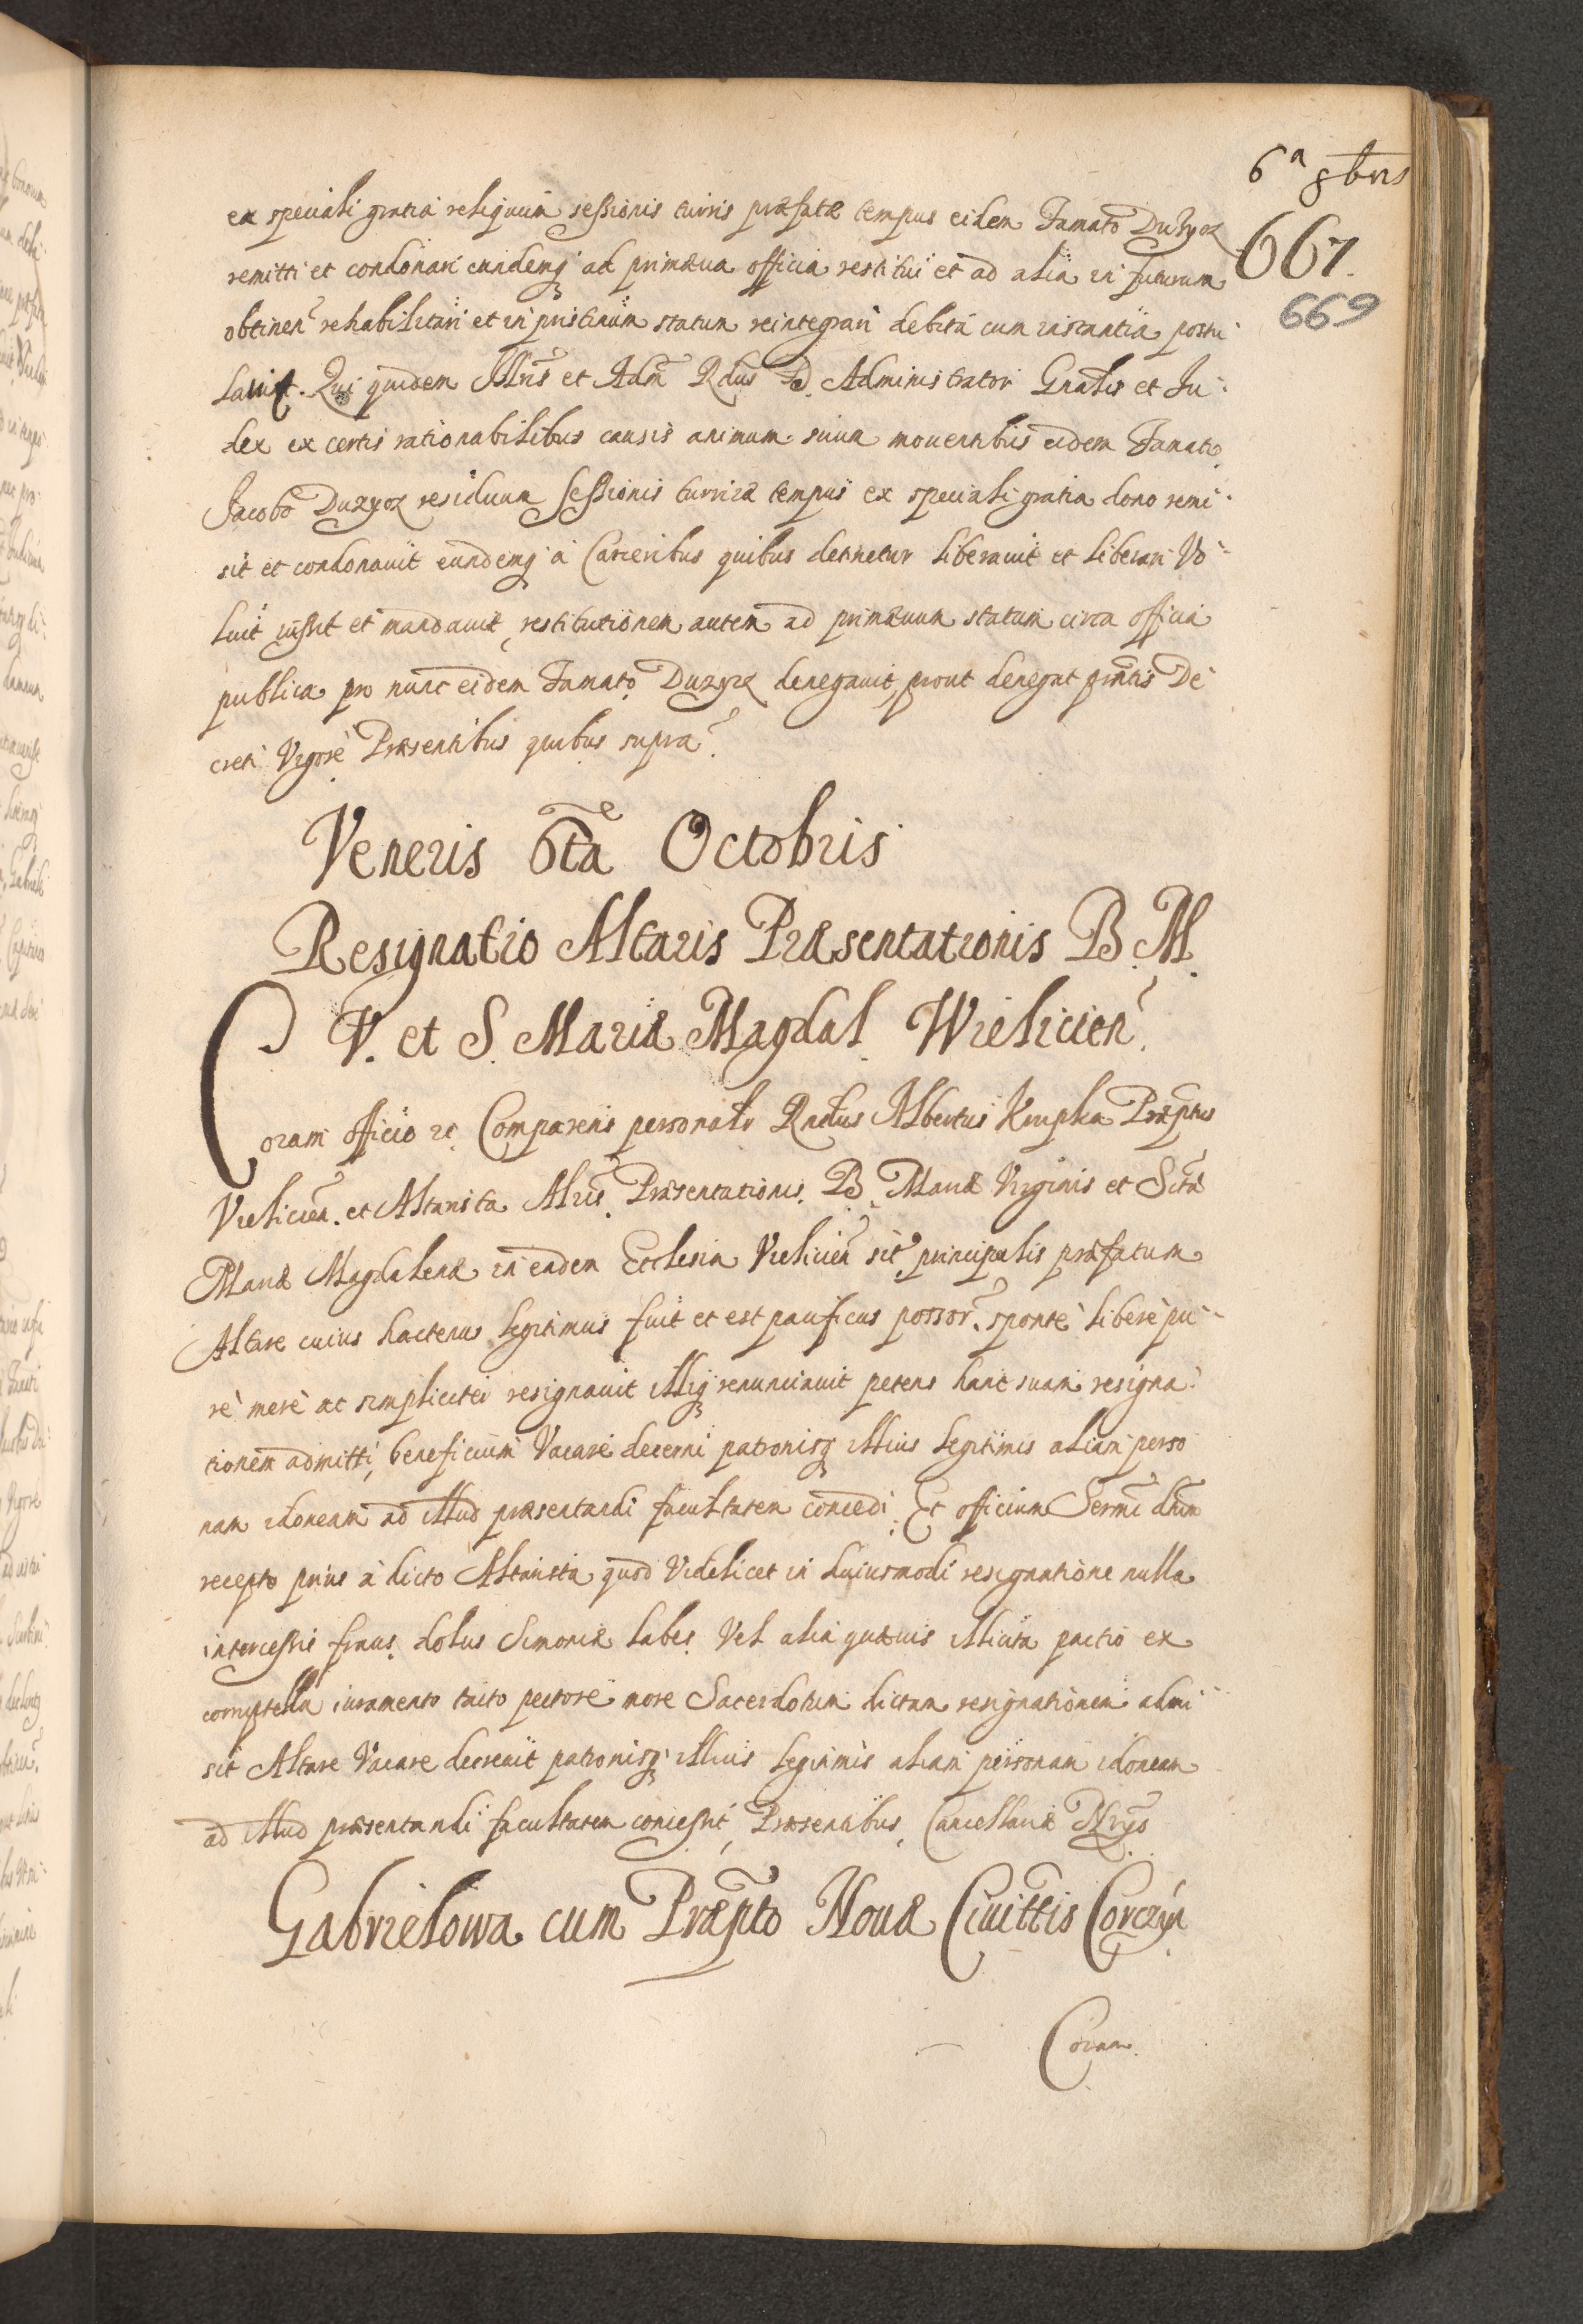 6ᵃ 8bris
667.
669
ex speciali gratia reliquum sessionis turris præfatæ tempus eidem Famato Duzyoz
remitti et condonari eundemq̃ ad primæva officia restitui et ad alia in futurum
obtinen̄ rehabilitari et in pristinum statum reintegrari debita cum instantia postu-
lavit. Qui quidem Illr̃is et Adm̃ Rd̃us D. Administrator Gnãlis et Ju-
dex ex certis rationabilibus causis animum suum moventibus eidem Famato
Jacobo Duzyoz residuum sessionis turris tempus ex speciali gratia dono remi-
sit et condonavit eundemq̃ à Carceribus quibus detinetur liberavit et liberari vo-
luit iussit et mandavit, restitutionem autem ad primævum statum circa officia
publica pro nunc eidem Famato Duzyoz denegavit, prout denegat prãtis De
creti Vigore Præsentibus quibus supra.
Veneris 6ta Octobris
Resignatio Altaris Præsentationis B. M.
V. et S. Mariæ Magdal. Wielicien̄.
Coram officio et c̃ Comparens personalr̃ Rndus Albertus Krupka Præp̃tus
Vielicien̄. et Altarista Alr̃is Præsentationis B. Mariæ Virginis et Sctæ
Mariæ Magdalenæ in eadem Ecclesia Vielicien̄ sit̃ principalis præfatum
Altare cuius hactenus legitimus fuit et est pacificus possor̃. sponte libere pu-
rè merè ac simpliciter resignavit illiq̃ renunciavit petens hanc suam resigna-
tionem admitti, beneficium Vacare decerni patronisq̃ illius legitimis aliam perso
nam idoneam ad illud præsentandi facultatem concedi. Et officium Sermi dñim
recepto prius à dicto Altarista quod Videlicet in huiusmodi resignatione nulla
intercessit fraus, dolus Simoniæ labes Vel alia quævis illicita pactio ex
corruptella iuramento tacto pectore more Sacerdotum dictam resignationem admi-
sit Altare Vacare decrevit patronisq̃ illius legitimis aliam personam idoneam
ad illud præsentandi facultatem concessit, Præsentibus, Cancellariæ Nr̃ijs
Gabrielowa cum Præp̃to Novæ Civittis Corczyn
Coram